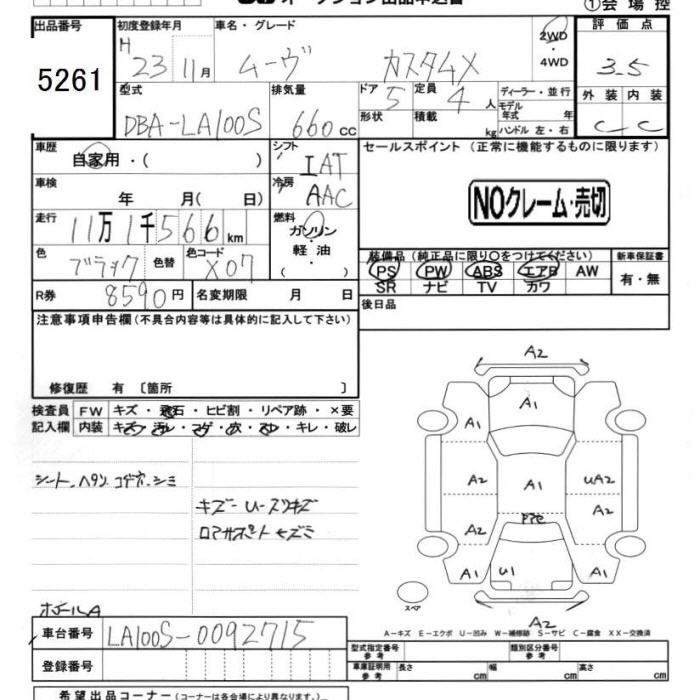 ①会場控
出品番号 初度登録年月 車名・グレード 2WD 評価点
5261 H 23 11月 ムーヴ カスタムX ・4WD 3.5
型式 排気量 ドア 5 定員 4人 ディーラー・並行 外装 内装
DBA-LA100S 660cc 形状 積載 kg モデル年式 年 C C
ハンドル 左・右
車歴 シフト セールスポイント (正常に機能するものに限ります)
自家用・( ) IAT
車検 冷房
年 月( 日) AAC NOクレーム・売切
走行 燃料
11万1千566km ガソリン・軽油・( )
色 ブラック 色替 色コード X07 装備品 (純正品に限り○をつけてください) 新車保証書
PS PW ABS エアB AW 有・無
R券 8590円 名変期限 月 日 SR ナビ TV カワ
後日品
注意事項申告欄(不具合内容等は具体的に記入して下さい)
修復歴 有 〔箇所 〕
検査員 FW キズ・飛石・ヒビ割・リペア跡・×要
記入欄 内装 キズ・汚レ・コゲ・穴・スレ・キレ・破レ
A2
A1
A1 A1
A2 A1 UA2
A2 A2
A1 U1 A1
A2
スペア
A-キズ E-エクボ U-凹み W-補修跡 S-サビ C-腐食 XX-交換済
車台番号 LA100S-0092715
登録番号
型式指定番号 参考 類別区分番号 参考
車庫証明用 参考 長さ cm 幅 cm 高さ cm
希望出品コーナー (コーナーは各会場により異なります。)